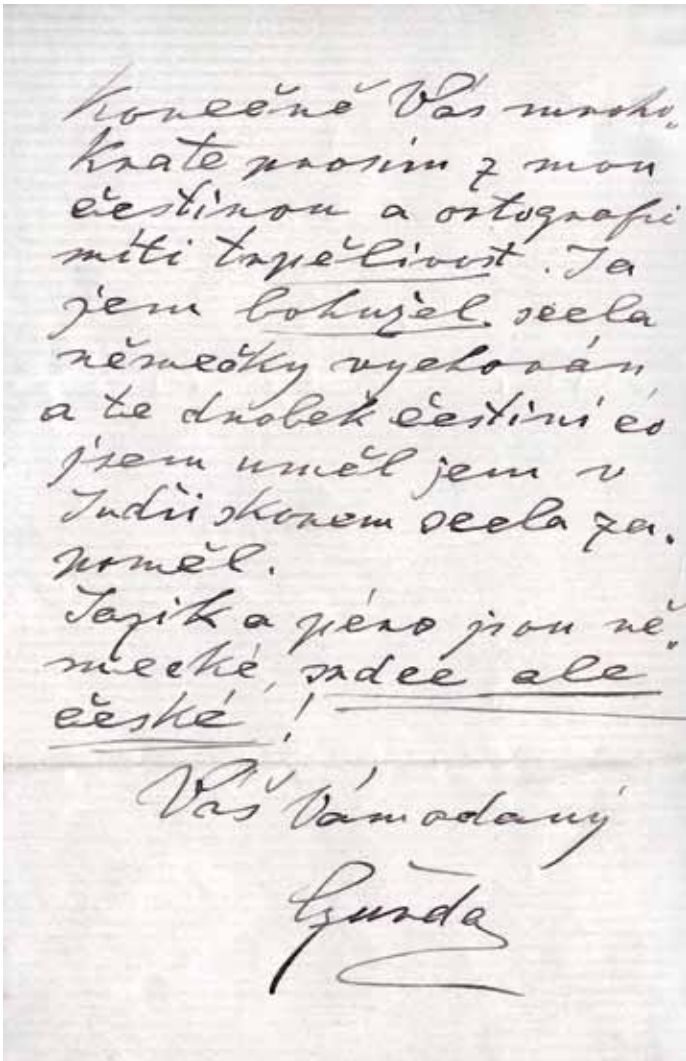 Konečně Vás mnoho„
kráte prosim z mou
češtinou a ortografii
míti trpělivost. Ja
jem bohužel scela
německy vychován
a te drobek češtini co
jsem uměl jem v
scela za„
poměl.
Jazik a péro jsou ně„
mecké, srdce ale
české!
Váš Vám odaný